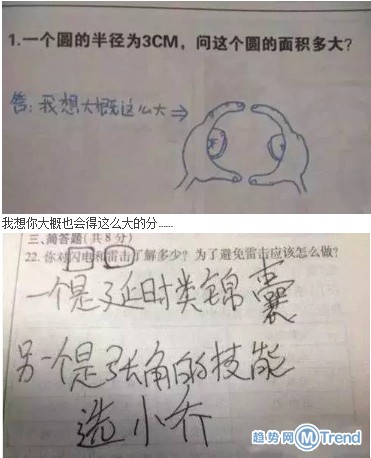 1.一个圆的半径为3CM，问这个圆的面积多大?
答:我想大概这么大⇒
我想你大概也会得这么大的分......
三、简答题(共8分)
22. 你对闪电和雷击了解多少? 为了避免雷击应该怎么做?
一个是延时类锦囊
另一个是张角的技能
选小乔
趋势网 M Trend